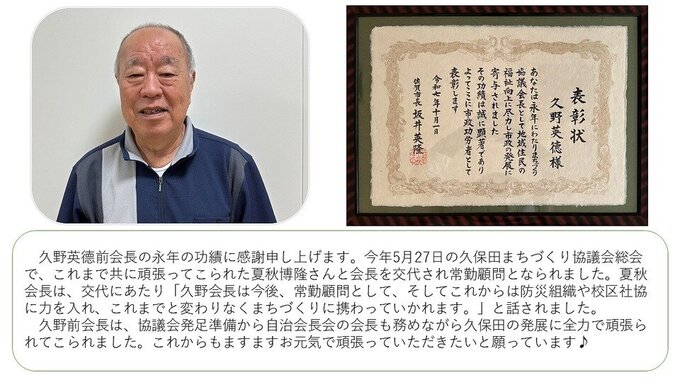 表彰状
久野英徳様
あなたは永年にわたりまちづくり
協議会長として地域住民の
福祉向上に尽力し市政の発展に
寄与されました
その功績は誠に顕著であり
よってここに市政功労者として
表彰します
令和七年十月一日
佐賀市長 坂井英隆
久野英德前会長の永年の功績に感謝申し上げます。今年5月27日の久保田まちづくり協議会総会
で、これまで共に頑張ってこられた夏秋博隆さんと会長を交代され常勤顧問となられました。夏秋
会長は、交代にあたり「久野会長は今後、常勤顧問として、そしてこれからは防災組織や校区社協
に力を入れ、これまでと変わりなくまちづくりに携わっていかれます。」と話されました。
久野前会長は、協議会発足準備から自治会長会の会長も務めながら久保田の発展に全力で頑張ら
れてこられました。これからもますますお元気で頑張っていただきたいと願っています♪